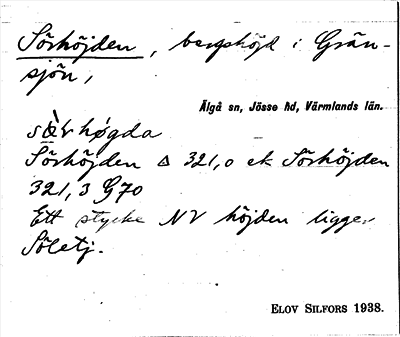 Sörhöjden, bergshöjd i Grän-
sjön,
Älgå sn, Jösse hd, Värmlands län.
sœ̀r høgda
Sörhöjden △ 321,0 ek Sörhöjden
321,3 G70
Ett stycke NV höjden ligger
Söletj.
ELOV SILFORS 1938.